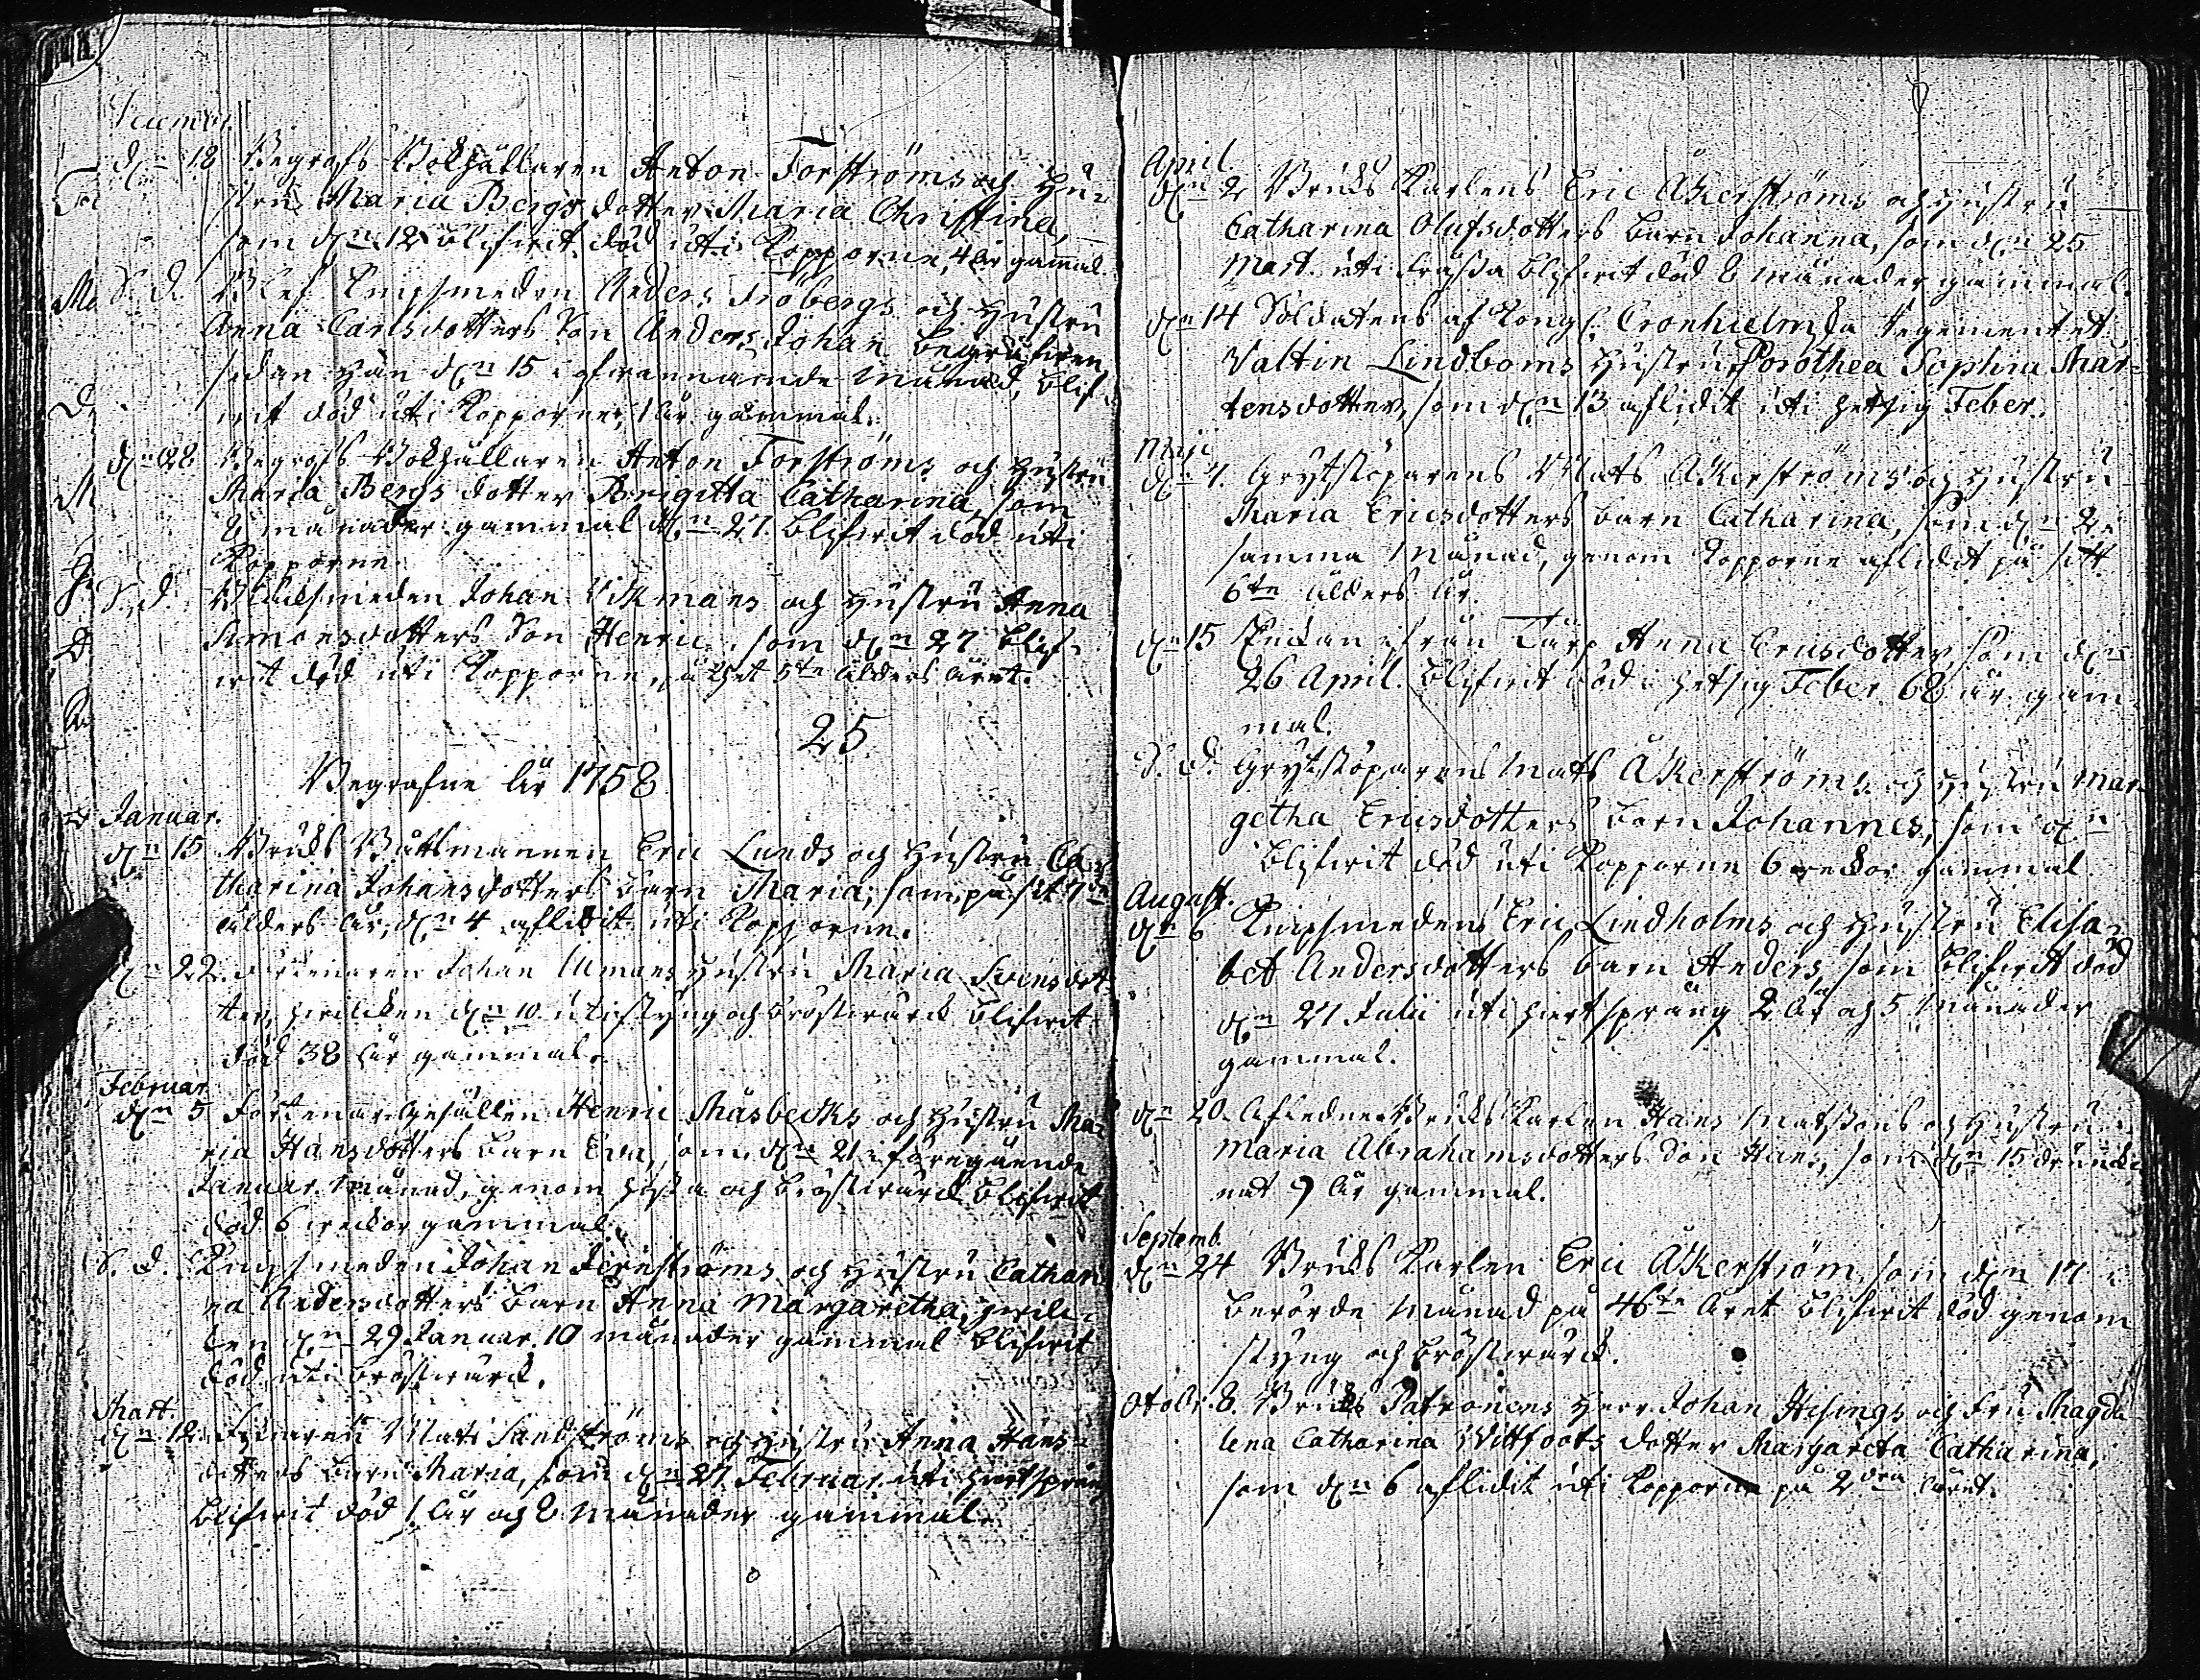 Decembr.
d. 18 Begrofs Bokhållaren Anton Forströms och Hu-
stru Maria Bergs dotter Maria Christina,
som d. 12 blifwit död uti Kopporne, 4 år gammal.
S. d. Blef Knipsmeden Anders Frobergs och Hustru
Anna Carlsdotters Son Anders Johan begrafwen
sedan han d. 15 i ofwannämde Månad, blif-
wit död uti Kopporne, 1 år gammal.
d. 28 Begrofs Bokhållaren Anton Forströms och Hustru
Maria Bergs dotter Brigitta Catharina, som
8 månader gammal d. 27 blifwit död uti
Kopporne.
S. d. Johan Wikmans och Hustru Anna
Simonsdotters Son Henric, som d. 27 blif-
wit död uti Kopporne, på thet 5te ålders året.
25
Begrafne År 1758
Januar.
d. 15 Bruks Båtsmannen Eric Lunds och Hustru Ca-
tharina Johansdotters barn Maria, som på sit
ålders År, d. 4 aflidit uti Kopporne.
d. 22 Johan Ulmans Hustru Maria Svensdot-
ter, hwilcken d. 10 uti styng och bröstwärck blifwit
död 38 år gammal.
Februar.
d. 5 Gesällen Henric Måsbecks och Hustru Ma-
ria Hansdotters barn Ewa, som d. 21 i föregående
Januar. Månad, genom hosta och bröstwärck blifwit
död 6 weckor gammal.
S. d. Knipsmeden Johan Fernströms och Hustru Cathari-
na Andersdotters barn Anna Margaretha, hwilc-
ken d. 29 Januar. 10 månader gammal blifwit
död uti bröstwärck.
Mart.
d. 12 Mats Sandströms och Hustru Anna Hans-
dotters barn Maria, som d. 27 Februar. uti hiertsprång
blifwit död 1 År och 8 Månader gammal.
April
d. 2 Bruks Karlens Eric Åkerströms och Hustru
Catharina Olufsdotters barn Johanna, som d. 25
Mart. uti blifwit död 8 månader gammal.
d. 14 Soldatens af Kongl. Cronhielmska Regementet
Valtin Lindboms Hustru Dorothea Sophia Mår-
tensdotter, som d. 13 aflidit uti hetsig Feber.
Maji
d. 4. Grytstöparens Mats Åkerströms och Hustru
Maria Ericsdotters barn Catharina, som d. 2
samma Månad, genom Kopporne aflidit på sitt
6te ålders År.
d. 15 Enckan ifrån Tärp Anna Ericsdotter, som d.
26 April. blifwit död i hetsig Feber 68 år gam-
mal.
S. d. Grytstöparens Mats Åkerströms och Hustru Mar-
getha Ericsdotters barn Johannes, som d.
blifwit död uti Kopporne 6 weckor gammal
August.
d. 6 Knipsmedens Eric Lindholms och Hustru Elisa-
bet Andersdotters barn Anders, som blifwit död
d. 27 Julii uti hiertsprång 2 År och 5 Månader
gammal.
d. 20. Afledne Bruks Karlen Hans Matssons och Hustru
Maria Abrahamsdotters Son Hans, som d. 15 drunck-
nat 9 År gammal.
Septemb.
d. 24 Bruks Karlen Eric Åkerström, som d. 17 i
berörde Månad på 46te Året blifwit död genom
styng och bröstwärck.
Octobr. 8. Bruks Patronens Herr Johan Hisings och Fru Magda-
lena Catharina Wittfoots dotter Margareta Catharina,
som d. 6 aflidit uti Kopporne på 2dra Året.